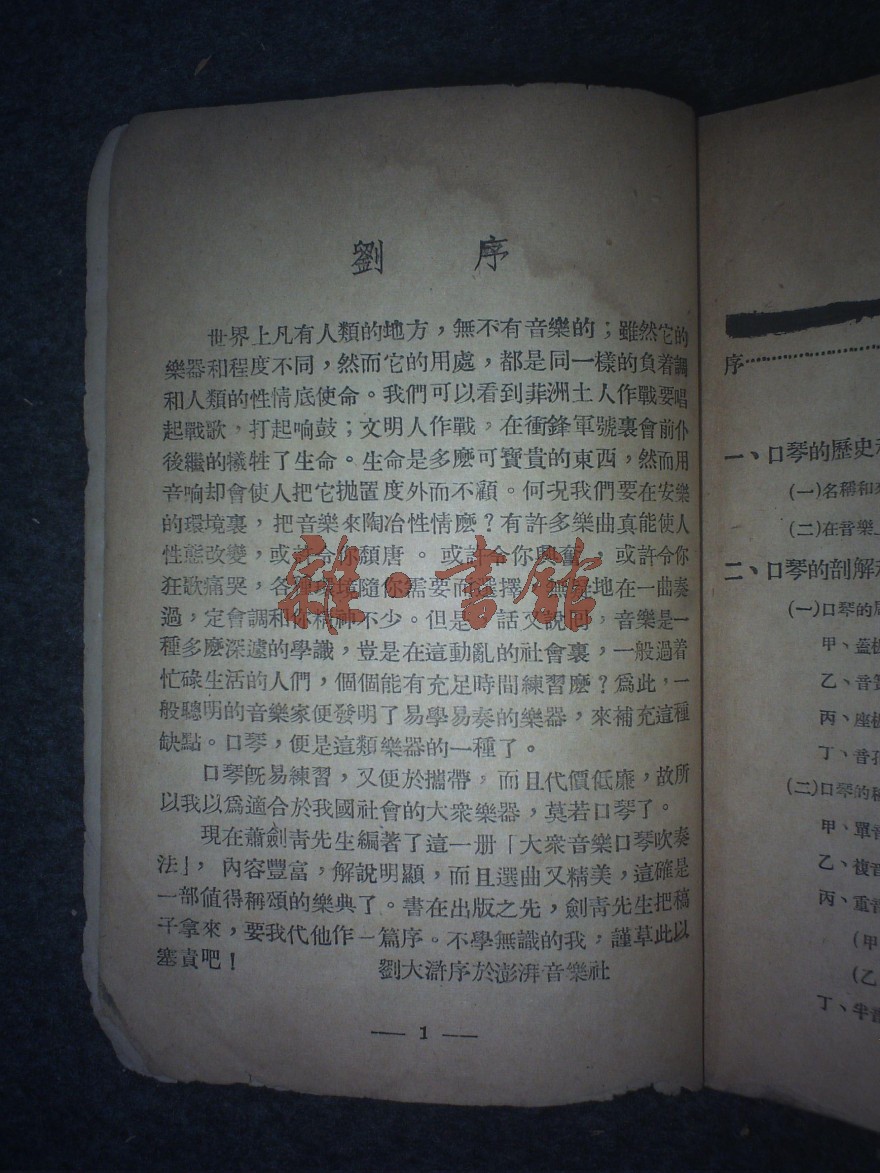 劉　序
世界上凡有人類的地方，無不有音樂的；雖然它的
樂器和程度不同，然而它的用處，都是同一樣的負着調
和人類的性情底使命。我們可以看到菲洲土人作戰要唱
起戰歌，打起响鼓；文明人作戰，在衝鋒軍號裏會前仆
後繼的犧牲了生命。生命是多麽可寶貴的東西，然而用
音响却會使人把它抛置度外而不顧。何况我們要在安樂
的環境裏，把音樂來陶冶性情麽？有許多樂曲真能使人
性態改變，或許令你頹唐。或許令你興奮，或許令你
狂歌痛哭，各種環境隨你需要而選擇，無形地在一曲奏
過，定會調和你精神不少。但是，話又說回，音樂是一
種多麽深邃的學識，豈是在這動亂的社會裏，一般過着
忙碌生活的人們，個個能有充足時間練習麽？爲此，一
般聰明的音樂家便發明了易學易奏的樂器，來補充這種
缺點。口琴，便是這類樂器的一種了。
口琴旣易練習，又便於攜帶，而且代價低廉，故所
以我以爲適合於我國社會的大衆樂器，莫若口琴了。
現在蕭劍青先生編著了這一册「大衆音樂口琴吹奏
法」，內容豐富，解說明顯，而且選曲又精美，這確是
一部值得稱頌的樂典了。書在出版之先，劍青先生把稿
子拿來，要我代他作一篇序。不學無識的我，謹草此以
塞責吧！　劉大滸序於澎湃音樂社
— 1 —
雜·書館
序
一、口琴的歷史
(一)名稱和
(二)在音樂
二、口琴的剖解
(一)口琴的
甲、蓋板
乙、音簧
丙、座板
丁、音孔
(二)口琴的種
甲、單音
乙、複音
丙、重音
(甲
(乙
丁、半音